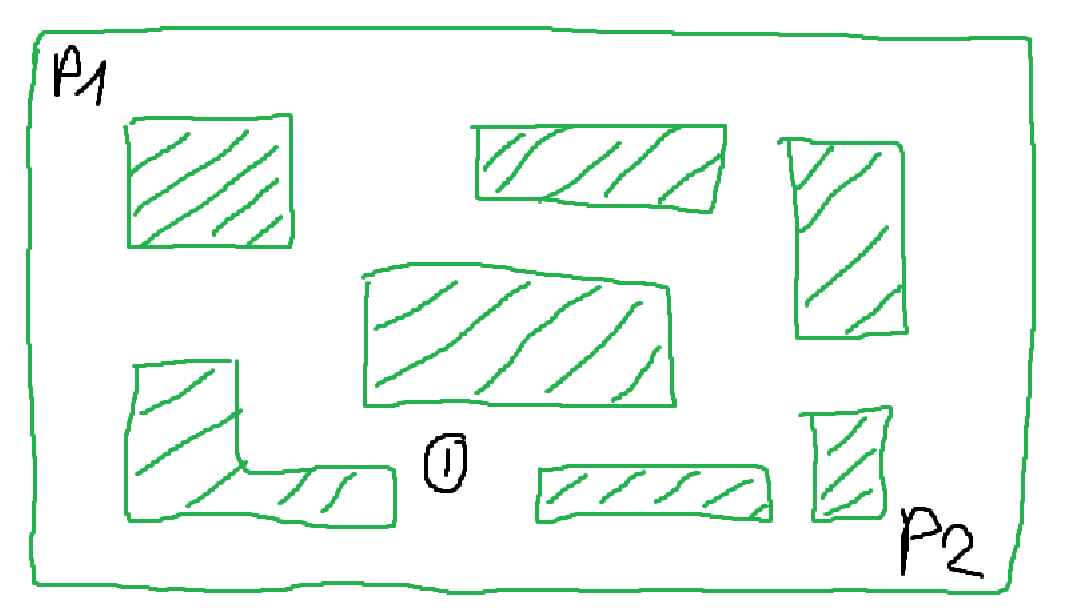 P1
1
P2